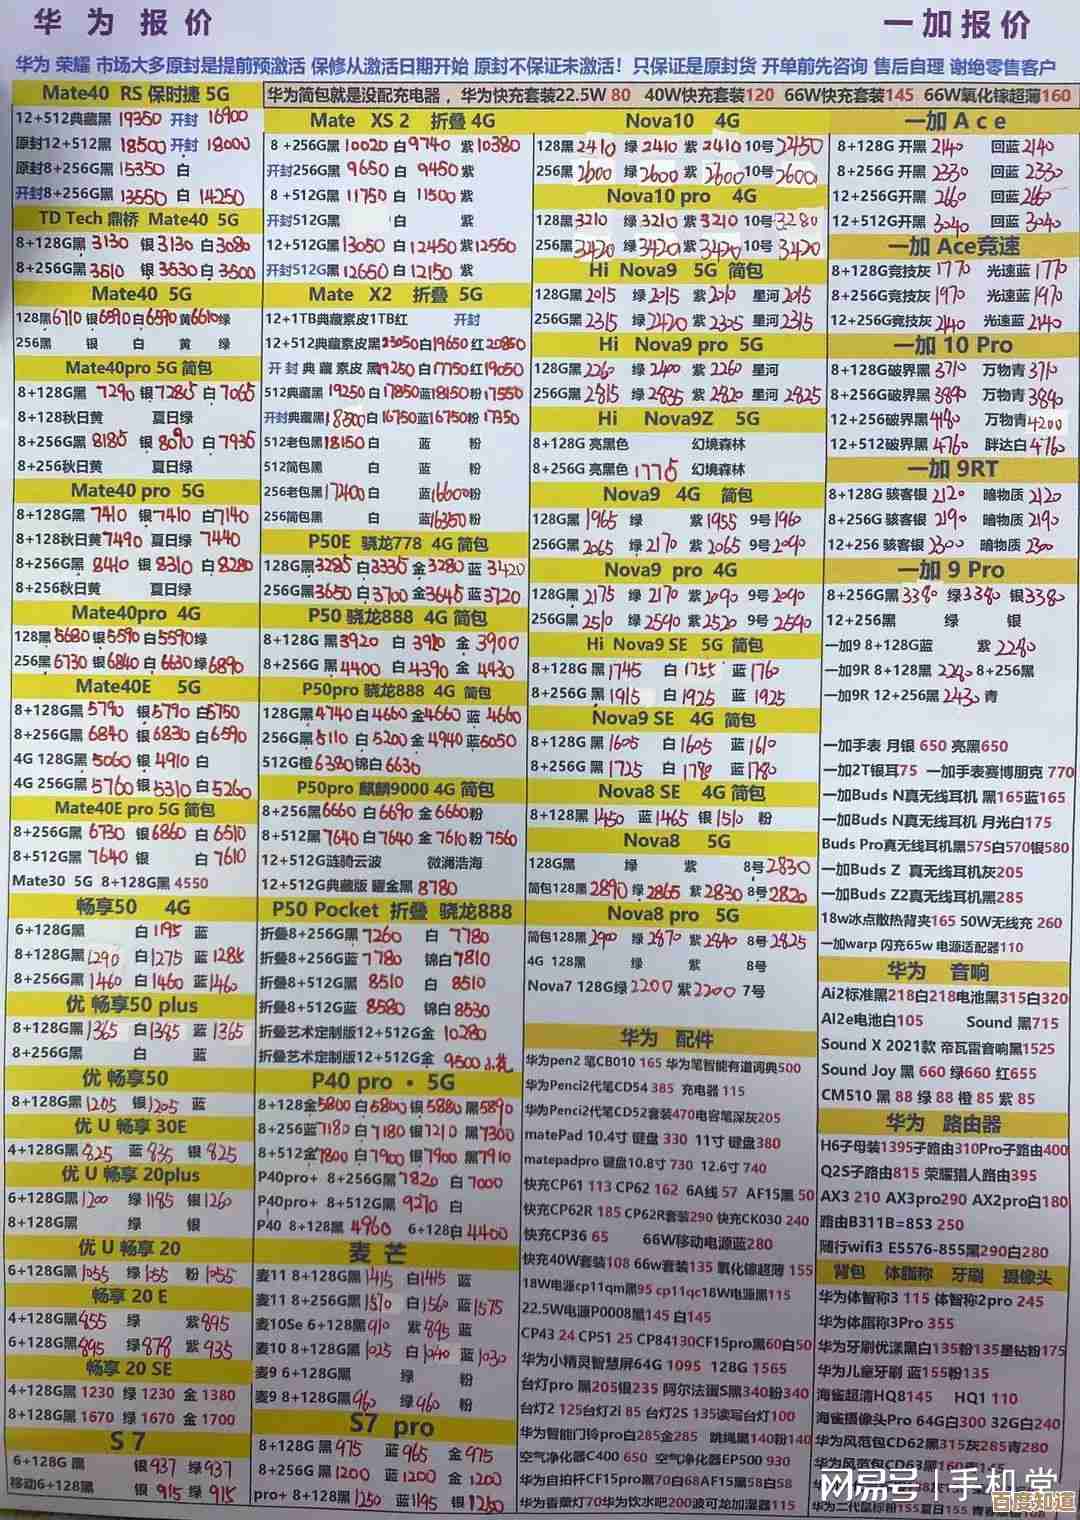 华为报价
一加报价
华为 荣耀 市场大多原封是提前预激活 保修从激活日期开始 原封不保证未激活！只保证是原封货 开单前先咨询 售后自理 谢绝零售客户
Mate40 RS 保时捷 5G
12+512典藏黑 19350 开封 16900
原封12+512黑 18500 开封 18000
原封8+256G黑 15350 白
开封8+256G黑 13550 白 14250
TD Tech 鼎桥 Mate40 5G
8+128G黑 3130 银 3130 白 3080
8+256G黑 3610 银 3630 白 3600
Mate40 5G
128黑6710 银6590 白6590 黄6610绿
256黑 银 白 黄 绿
Mate40pro 5G 简包
8+128G黑 7290 银 7285 白 7065
8+128秋日黄 夏日绿
8+256G黑 8185 银 8090 白 7935
8+256秋日黄 夏日绿
Mate40 pro 5G
8+128G黑 7410 银7410 白7140
8+128秋日黄7490 夏日绿 7440
8+256G黑 8410 银 8310 白8280
8+256秋日黄 夏日绿
Mate40pro 4G
128黑5680 银5590 白5590绿
256黑 6730 银6840 白 6630绿6890
Mate40E 5G
8+128G黑 5790 银5790 白5750
8+256G黑 6840 银6830 白6590
4G 128黑5060 银4910 白
4G 256黑5760 银5310 白5260
Mate40E pro 5G 简包
8+256G黑 6730 银6860 白 6510
8+512G黑 7640 银 白 7610
Mate30 5G 8+128G黑 4550
畅享50 4G
6+128G黑 白 1195 蓝
8+128G黑1290 白1275 蓝 1285
8+256G黑 1460 白 1460 蓝1460
优 畅享50 plus
8+128G黑 1365 白 1385 蓝 1365
8+256G黑 白 蓝
优 畅享50
8+128G黑 1205 银1205 蓝
优 U 畅享 30E
4+128G黑 825 蓝 835 银 825
优 U 畅享 20plus
6+128G黑 1200 绿 1185 银 1260
8+128G黑 绿 银
优 U 畅享 20
6+128G黑 1055 绿 1055 粉 1055
畅享 20 E
4+128G黑 855 绿 紫 895
6+128G黑895 绿 878 紫 935
畅享 20 SE
4+128G黑 1230 绿 1230 金 1380
8+128G黑 1670 绿 1670 金 1700
S 7
6+128G 黑 银 937 绿 937
移动6+128黑 银 915 绿 915
华为简包就是没配充电器，华为快充套装22.5W 80 40W快充套装120 66W快充套装145 66W氧化镓超薄160
Mate XS 2 折叠 4G
8 +256G黑 10020 白9740 紫10380
开封256G黑 9650 白 9450 紫
8 +512G黑 11750 白 11500 紫
开封512G黑 白 紫
12+512G黑 13050 白 12450 紫12550
开封512G黑 12650 白 12150 紫
Mate X2 折叠 5G
12+1TB典藏素皮1TB红 开封
12+512典藏素皮黑23050白19650 红 20850
开 封 典 藏 素 皮 黑19250 白17750 红19050
512典藏黑 19250 白17850蓝18150粉17550
开封典藏黑18800白16750蓝16750粉 17350
512老包黑18150 白 蓝 粉
512简包黑 白 蓝 粉
256老包黑17400 白 蓝16600粉
256简包黑 白 蓝16350粉
P50E 骁龙778 4G 简包
128G黑3285 白3335 金 3280 蓝 3420
256G黑3650 白 3700 金 3645 蓝 3720
P50 骁龙888 4G 简包
8+128G 黑3920 白 3910 金 3900
8+256G 黑 4400 白 4390 金 4430
P50pro 骁龙888 4G 简包
128G黑4740 白 4660 金4660 蓝 4660
256G黑5110 白 5200 金 4940 蓝5050
512G橙 6380锦白 6630
P50pro 麒麟9000 4G 简包
8+256黑6660 白 6690 金 6600粉
8+512黑 7640 白 7640 金 7610粉 7560
12+512G涟骑云波 微澜浩海
12+512G典藏版 曜金黑 8780
P50 Pocket 折叠 骁龙888
折叠8+256G黑 7260 白 7780
折叠8+256G蓝 7780 锦白7810
折叠8+512G黑 8510 白 8510
折叠8+512G蓝 8580 锦白 8530
折叠艺术定制版12+512G金 10280
折叠艺术定制版12+512G金 9500 小花
P40 pro · 5G
8+128金5800 白5800 银5880 黑5890
8+256蓝 7180 白 7180 银7210 黑7300
8+512金7800 白7900 银7900 黑7910
P40pro+ 8+256G黑 7820 白 7000
P40pro+ 8+512G黑 9270 白
P40 8+128黑 4960 6+128白 4400
麦 芒
麦11 8+128G黑 1415 白1415 蓝
麦11 8+256G黑 1570 白1560 蓝1575
麦10Se 6+128黑 910 紫 895 蓝
麦10 8+128G黑 1025 白1040 蓝1030
麦9 6+128G黑 绿 粉
麦9 8+128G黑 960 绿 960 粉
S7 pro
8+128G 黑 975 蓝 965 金 975
8+256G 黑 1200 蓝 1200 金 1200
pro+ 8+128黑 1250 蓝1195 银 1250
Nova10 4G
128黑2410 绿 2410 紫 2410 10号 2450
256黑 2600 绿 2600 紫 2600 10号2600
Nova10 pro 4G
128黑3210 绿 3210 紫3210 10号3280
256黑3420 绿 3420 紫 3420 10号 3420
Hi Nova9 5G 简包
128G黑2015 绿 2015 紫 2010 星河 2015
256G黑 2315 绿 2420 紫 2305 星河2315
Hi Nova9 pro 5G
128G黑 2260 绿 2400 紫 2260 星河
256G黑 2815 绿 2835 紫 2820 星河 2825
Hi Nova9Z 5G
8+128G 亮黑色 幻境森林
8+256G 亮黑色 1775 幻境森林
Nova9 4G 简包
128G黑 1965 绿 紫 1955 9号 1960
256G黑 2065 绿 2170 紫 2065 9号 2090
Nova9 pro 4G
128G黑 2175 绿 2170 紫 2090 9号 2090
256G黑 2510 绿 2590 紫 2520 9号 2590
Hi Nova9 SE 5G 简包
8+128G 黑 1745 白 1755 蓝 1760
8+256G 黑 1915 白 1925 蓝 1925
Nova9 SE 4G 简包
8+128G 黑 1605 白1605 蓝 1610
8+256G 黑 1725 白 1780 蓝 1780
Nova8 SE 4G 简包
8+128黑 1450 蓝 1465 银 1510 粉
Nova8 5G
128G黑 绿 紫 8号2830
简包128黑 2890 绿 2865 紫 2830 8号 2820
Nova8 pro 5G
简包128黑 2900 绿 2870 紫 2840 8号 2825
4G 128黑 绿 紫 8号
Nova7 128G绿 2200 紫 2200 7号
华为 配件
华为pen2 笔CB010 165 华为笔智能有道词典500
华为Penci2代笔CD54 385 充电器 115
华为Penci2代笔CD52套装470电容笔深灰205
matePad 10.4寸 键盘 330 11寸 键盘380
matepadpro 键盘10.8寸 730 12.6寸 740
快充CP61 113 CP62 162 6A线 57 AF15黑 50
快充CP62R 185 CP62R套装290 快充CK030 240
快充CP36 65 66W移动电源蓝280
快充40W套装108 66w套装135 氧化镓超薄 155
18W电源cp11qm黑95 cp11qc18W电源黑115
22.5W电源P0008黑145 白145
CP43 24 CP51 25 CP84130CF15pro黑60白50
华为小精灵智慧屏64G 1095 128G 1565
台灯pro 黑205银235 阿尔法蛋S黑340粉340
台灯2 125台灯2i 85 台灯2S 135读写台灯100
华为智能门铃pro白285金285 跳绳黑140粉140
空气净化器C400 650 空气净化器EP500 930
华为自拍杆CF15pro黑70白68AF15黑58白58
华为香薰灯70华为饮水吧200波可龙加湿器115
一加 A c e
8+128G 开黑 2140 回蓝 2140
8+256G 开黑 2330 回蓝 2330
12+256G开黑 2660 回蓝 2660
12+512G开黑 3040 回蓝 3040
一加 Ace竞速
8+128G竞技灰 1770 光速蓝 1770
8+256G竞技灰 1970 光速蓝 1970
12+256G竞技灰 2140 光速蓝 2140
一加 10 Pro
8+128G破界黑 3710 万物青 3710
8+256G破界黑 3890 万物青 3890
12+256破界黑4180 万物青4200
12+512破界黑 4760 胖达白 4760
一加 9RT
8+128G 骇客银 2120 暗物质 2120
8+256G 骇客银 2190 暗物质 2190
12+256 骇客银 2300 暗物质 2300
一加 9 Pro
8+256G黑 3380 绿3380 银3380
12+256黑 绿 银
一加9 8+128G蓝 紫 2280
一加9R 8+128黑 2280 8+256黑
一加9R 12+256黑 2430 青
一加手表 月银 650 亮黑650
一加2T银耳75 一加手表赛博朋克 770
一加Buds N真无线耳机 黑165蓝165
一加Buds N真无线耳机 月光白175
Buds Pro真无线耳机黑575白570银580
一加Buds Z 真无线耳机灰205
一加Buds Z2真无线耳机黑285
18w冰点散热背夹165 50W无线充 260
一加warp 闪充65w 电源适配器110
华为 音响
Ai2标准黑218白218电池黑315白320
AI2e电池白105 Sound 黑715
Sound X 2021款 帝瓦雷音响黑1525
Sound Joy 黑 660 绿660 红655
CM510 黑 88 绿 88 橙 85 紫 85
华为 路由器
H6子母装1395子路由310Pro子路由400
Q2S子路由815 荣耀猎人路由395
AX3 210 AX3pro290 AX2pro白180
路由B311B=853 250
随行wifi3 E5576-855黑290白280
背包 体脂称 牙刷 摄像头
华为体智称3 115 体智称2pro 245
华为体脂称3Pro 355
华为牙刷优漾黑白135粉135星钻粉175
华为儿童牙刷 蓝155粉135
海雀超清HQ8145 HQ1 110
海雀摄像头Pro 64G白300 32G白240
华为风范包CD62黑315灰285青280
华为风范包CD63黑160
网易号 | 手机堂
百度知道